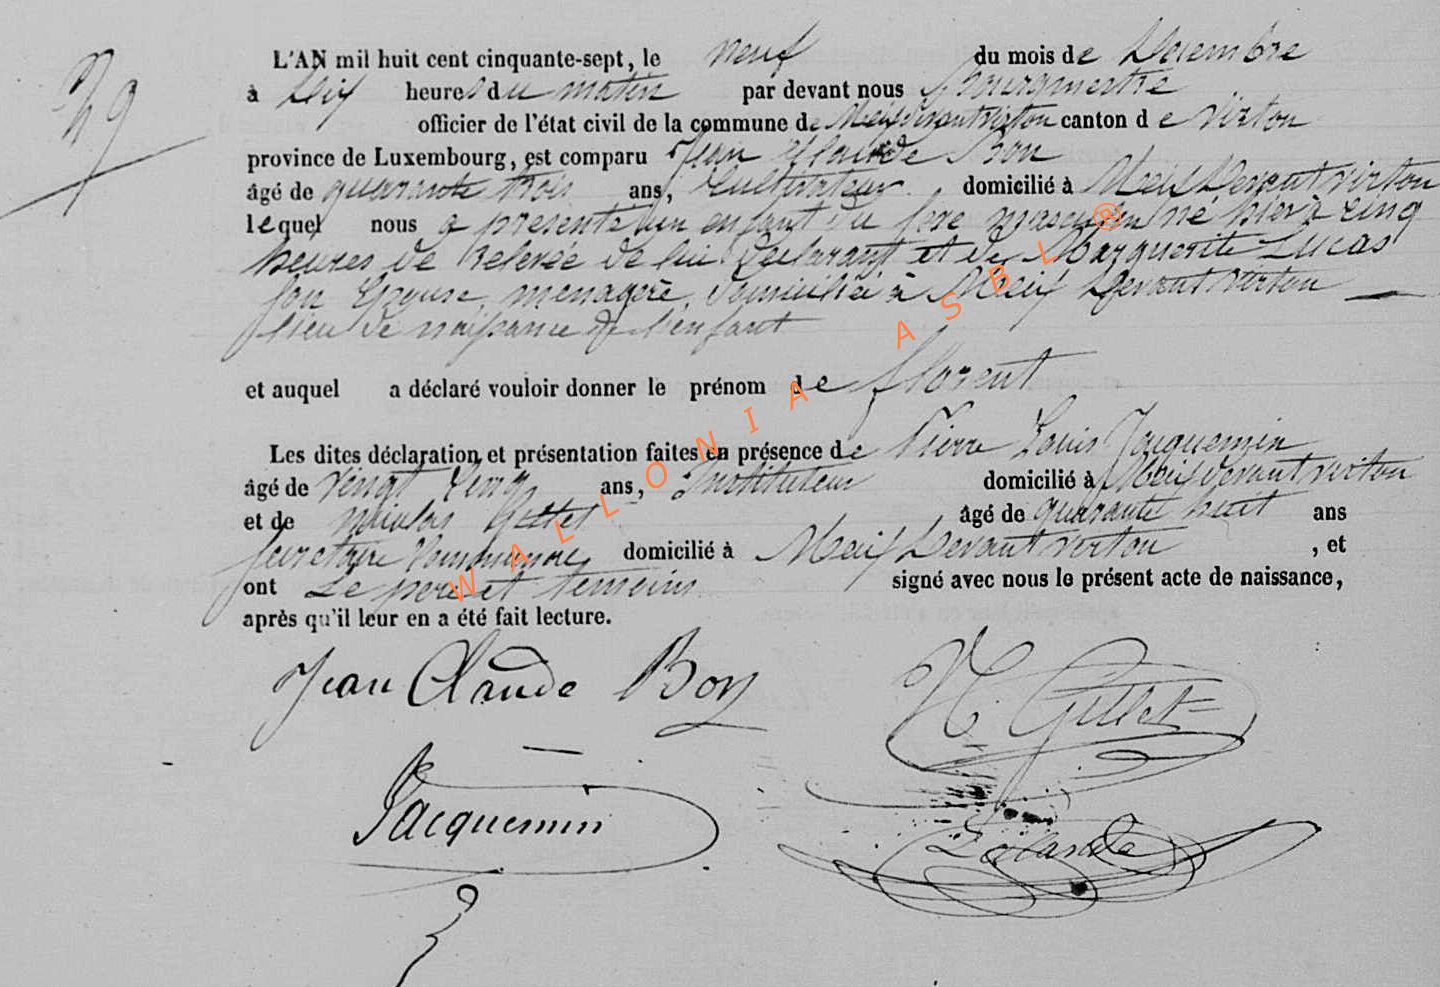 29
L'AN mil huit cent cinquante-sept, le neuf du mois de Décembre
à Dix heures du matin par devant nous Bourgmestre
officier de l'état civil de la commune de Meix Devant virton canton de virton
province de Luxembourg, est comparu Jean Claude Bon
âgé de quarante trois ans, Cultivateur domicilié à Meix Devant virton
lequel nous a présenté un enfant du sexe masculin né hier à cinq
heures de Relevée de lui Déclarant et de Marguerite Lucas
son Epouse, ménagère, domiciliée à Meix Devant virton
lieu de naissance de l'enfant
et auquel a déclaré vouloir donner le prénom de florent
Les dites déclaration et présentation faites en présence de Pierre Louis Jacquemin
âgé de vingt cinq ans, Instituteur domicilié à Meix Devant virton
et de nicolas Gillet âgé de quarante huit ans
secretaire Communal domicilié à Meix Devant virton , et
ont Le père et temoins signé avec nous le présent acte de naissance,
après qu'il leur en a été fait lecture.
Jean Claude Bon
N. Gillet
Jacquemin
WALLONIA ASBL ®